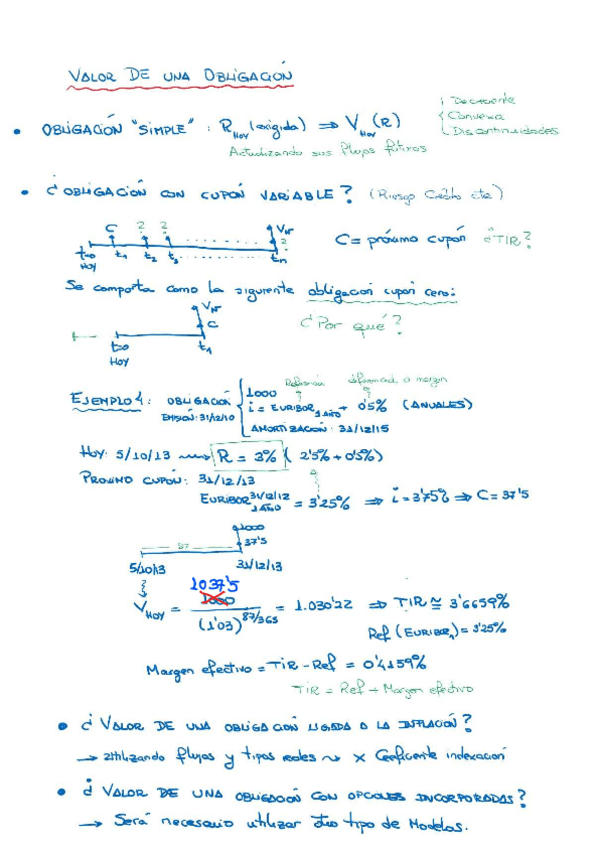 VALOR DE UNA OBLIGACIÓN
• OBLIGACIÓN "SIMPLE" : R Hoy (exigida) ⇒ V Hoy (R)
Decreciente
Convexa
Discontinuidades
Actualizando sus flujos futuros
• ¿OBLIGACIÓN CON CUPÓN VARIABLE? (Riesgo Crédito etc)
C ? ? VN
?
t=0 t1 t2 t3 tn
HOY
C = próximo cupón ¿TIR?
Se comporta como la siguiente obligación cupón cero:
VN
C
t=0 t1
HOY
¿Por qué?
Referencia diferencial o margen
EJEMPLO 4: OBLIGACIÓN
EMISIÓN: 31/12/10
1000
i = EURIBOR 1 AÑO + 0'5% (ANUALES)
AMORTIZACIÓN: 31/12/15
HOY: 5/10/13 → R = 3% (2'5% + 0'5%)
PRÓXIMO CUPÓN: 31/12/13
EURIBOR 31/12/12 1 AÑO = 3'25% ⇒ i = 3'75% ⇒ C = 37'5
1000
37'5
87
5/10/13 31/12/13
1037'5
V HOY = 1000 / (1'03)^87/365 = 1.030'22 ⇒ TIR ≅ 3'6659%
Ref (EURIBOR1) = 3'25%
Margen efectivo = TIR - Ref = 0'4159%
TIR = Ref + Margen efectivo
• ¿VALOR DE UNA OBLIGACIÓN LIGADA A LA INFLACIÓN?
→ Utilizando flujos y tipos reales ~ x Coeficiente indexación
• ¿VALOR DE UNA OBLIGACIÓN CON OPCIONES INCORPORADAS?
→ Será necesario utilizar otro tipo de Modelos.